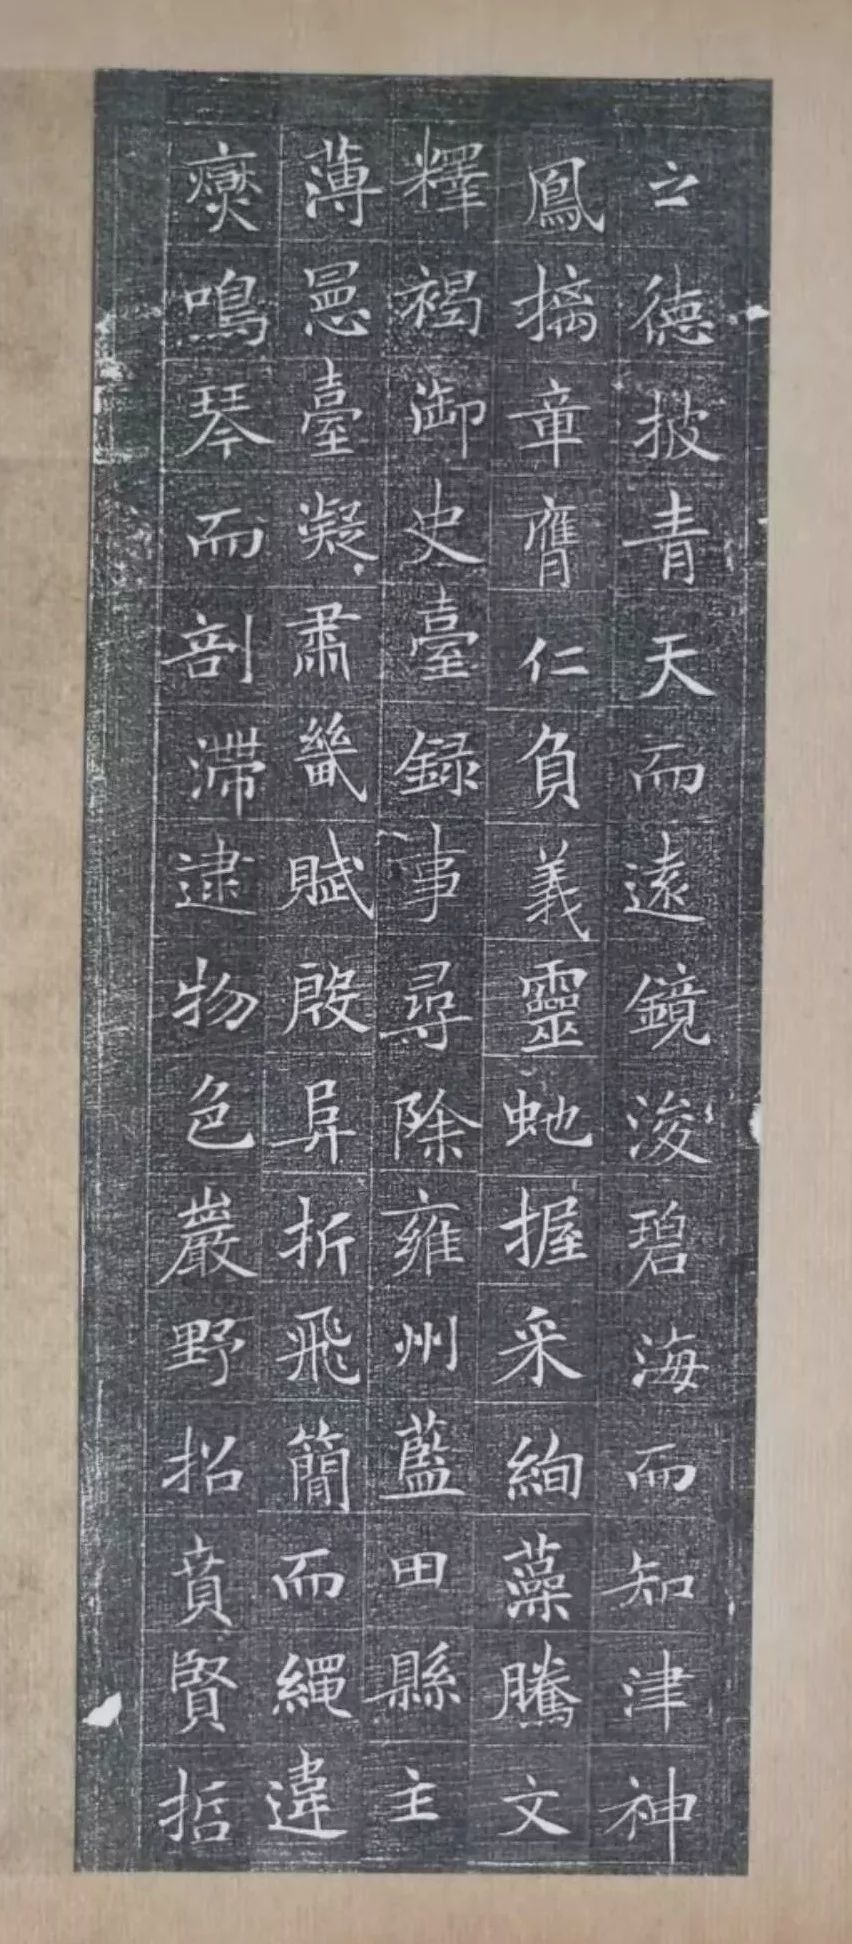 之德披青天而遠鏡浚碧海而知津神
鳳摛章膺仁負義靈虵握采絢藻騰文
釋褐御史臺録事尋除雍州藍田縣主
薄罳臺凝肅畿賦殷阜折飛簡而繩違
爕鳴琴而剖滯逮物色巖野招賁賢哲